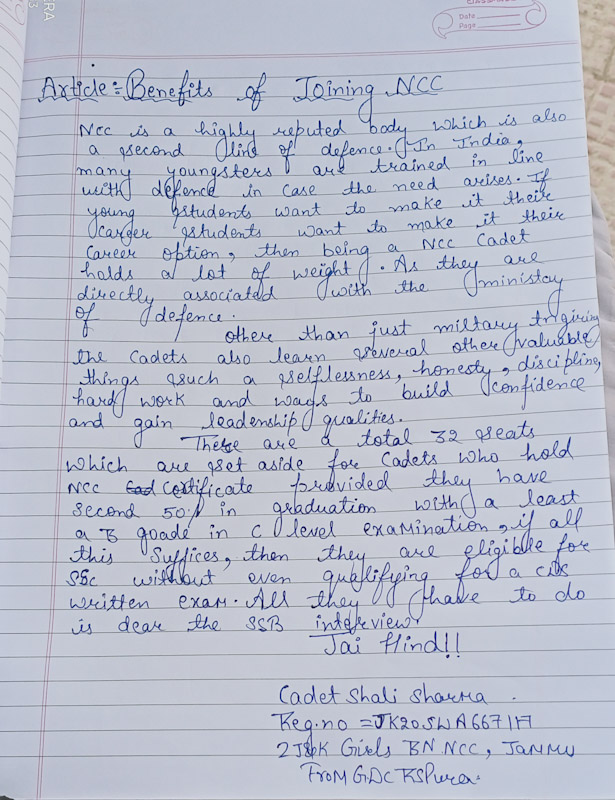 CLASSMATE
Date
Page
Article:= Benefits of Joining NCC
NCC is a highly reputed body which is also
a second line of defence. In India,
many youngsters are trained in line
with defence in case the need arises. If
young students want to make it their
career students want to make it their
career option, then being a NCC Cadet
holds a lot of weight. As they are
directly associated with the ministry
of defence.
other than just miltary
the Cadets also learn several other valuable
things such a selflessness, honesty, discipline,
hard work and ways to build confidence
and gain leadership qualities.
These are a total 32 seats
which are set aside for Cadets who hold
NCC Certificate provided they have
second 50% in graduation with a least
a B grade in C level examination, if all
this suffices, then they are eligible for
SSC without even qualifying for a CDS
written exam. All they have to do
is dear the SSB interview.
Jai Hind!!
Cadet Shali Sharma.
Reg.no = JK20SWA667117
2 J&K Girls BN NCC, JAMMU
FROM GDC RSPura.